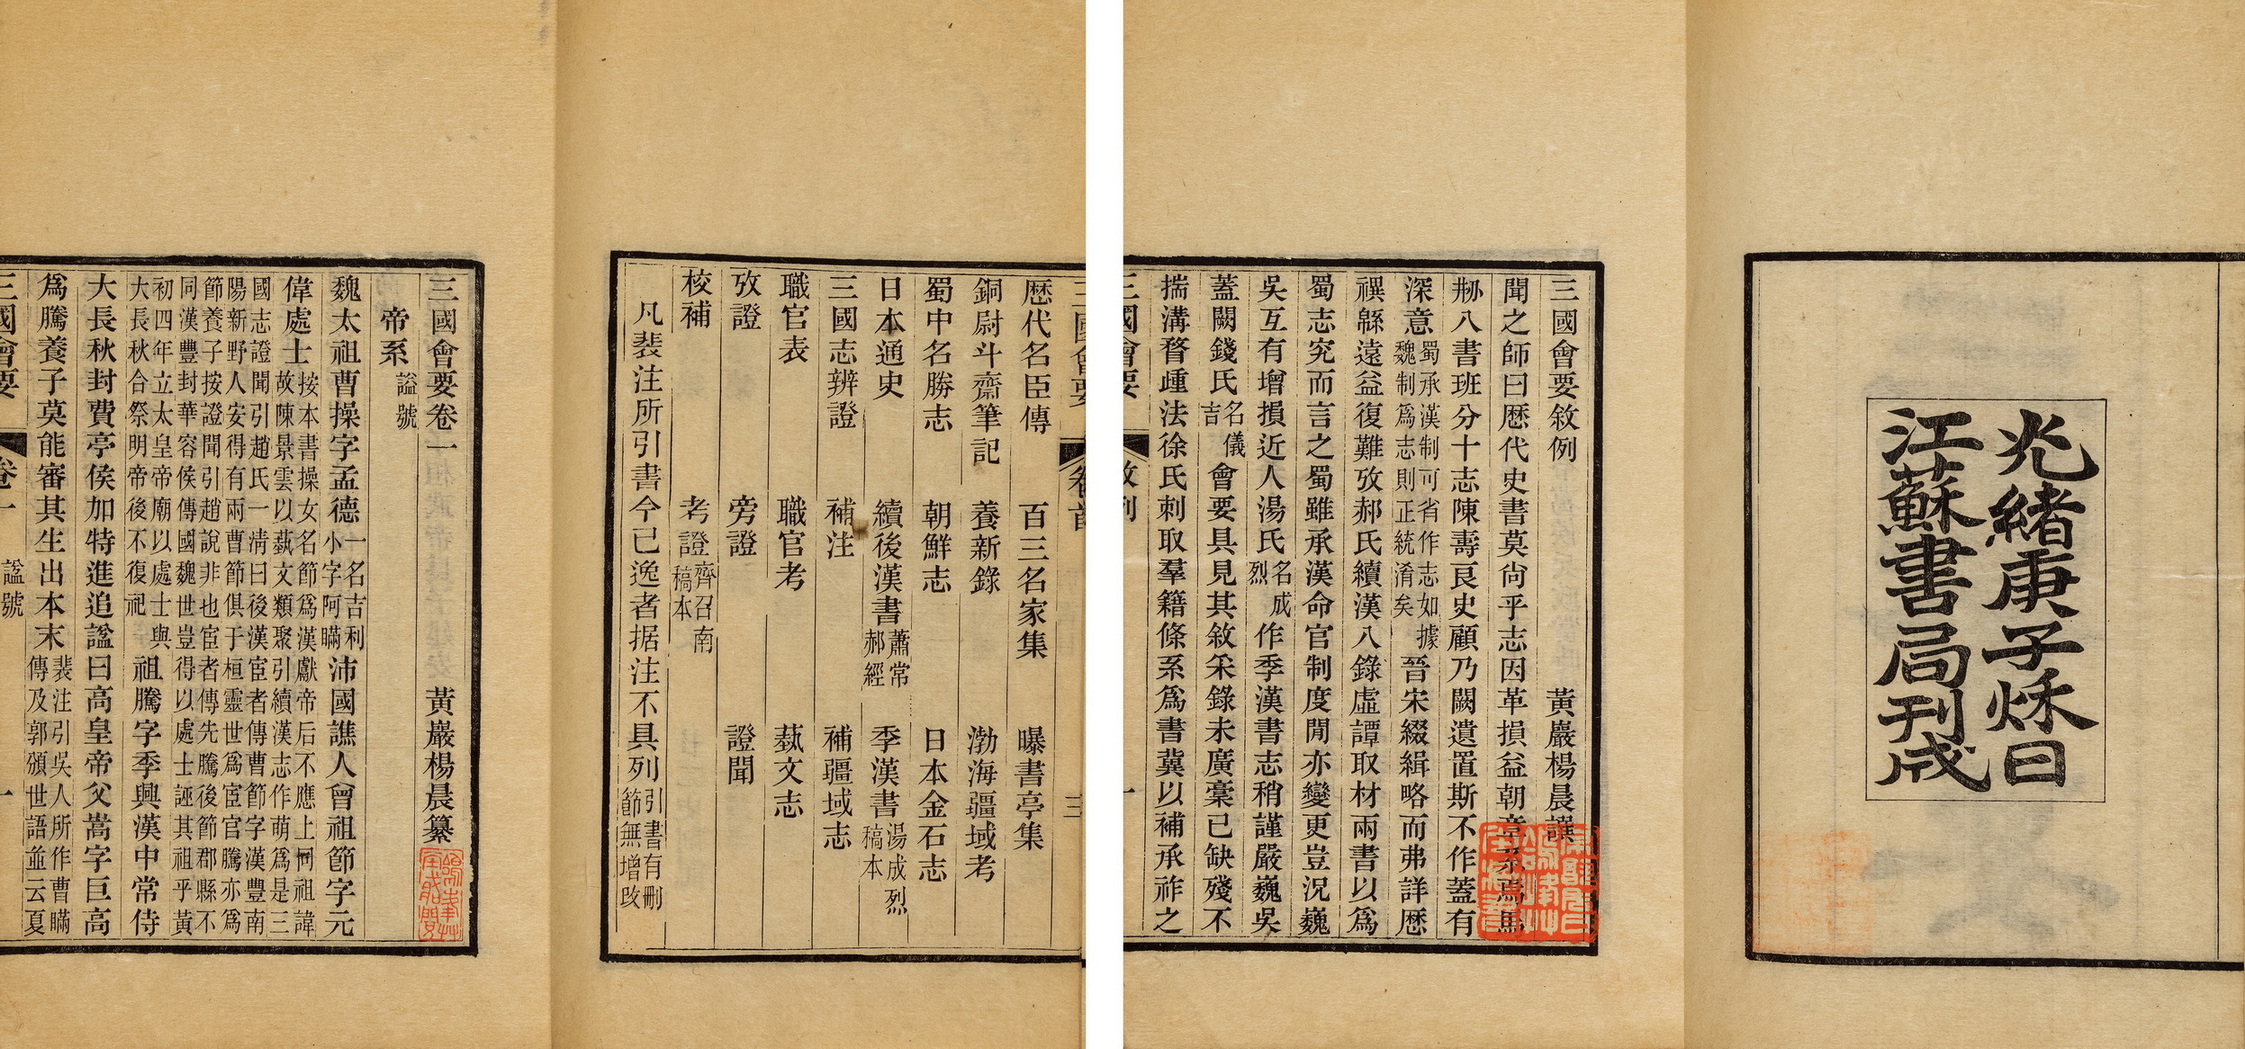 光緒庚子秌日
江蘇書局刊成
三國會要敘例 黃巖楊晨譔
聞之師曰歷代史書莫尙乎志因革損益朝章系焉馬
刱八書班分十志陳壽良史顧乃闕遺置斯不作蓋有
深意蜀承漢制可省作志如據魏制爲志則正統淆矣晉宋綴緝略而弗詳歷
禩緜遠益復難攷郝氏續漢八錄虛譚取材兩書以爲
蜀志究而言之蜀雖承漢命官制度閒亦變更豈況巍
吳互有增損近人湯氏名成烈作季漢書志稍謹嚴巍吳
蓋闕錢氏名儀吉會要具見其敘采錄未廣槀已缺殘不
揣溝瞀踵法徐氏刺取羣籍條系爲書冀以補承祚之
三國會要 敘例 一
三國會要 卷首 三
歷代名臣傳 百三名家集 曝書亭集
銅尉斗齋筆記 養新錄 渤海疆域考
蜀中名勝志 朝鮮志 日本金石志
日本通史 續後漢書蕭常郝經 季漢書湯成烈稿本
三國志辨證 補注 補疆域志
職官表 職官考 蓺文志
攷證 旁證 證聞
校補 考證齊召南稿本
凡裴注所引書今已逸者据注不具列引書有刪節無增改
三國會要卷一 黃巖楊晨纂
帝系 謚號
魏太祖曹操字孟德一名吉利小字阿瞞沛國譙人曾祖節字元
偉處士按本書操女名節爲漢獻帝后不應上同祖諱故陳景雲以蓺文類聚引續漢志作萌爲是三
國志證聞引趙氏一淸曰後漢宦者傳曹節字漢豐南陽新野人安得有兩曹節俱于桓靈世爲宦官騰亦爲
節養子按證聞引趙說非也宦者傳先騰後節郡縣不同漢豐封華容侯傳國魏世豈得以處士誣其祖乎黃
初四年立太皇帝廟以處士與大長秋合祭明帝後不復祀祖騰字季興漢中常侍
大長秋封費亭侯加特進追謚曰高皇帝父嵩字巨高
爲騰養子莫能審其生出本末裴注引吳人所作曹瞞傳及郭頒世語並云夏
三國會要 卷一 謚號 一